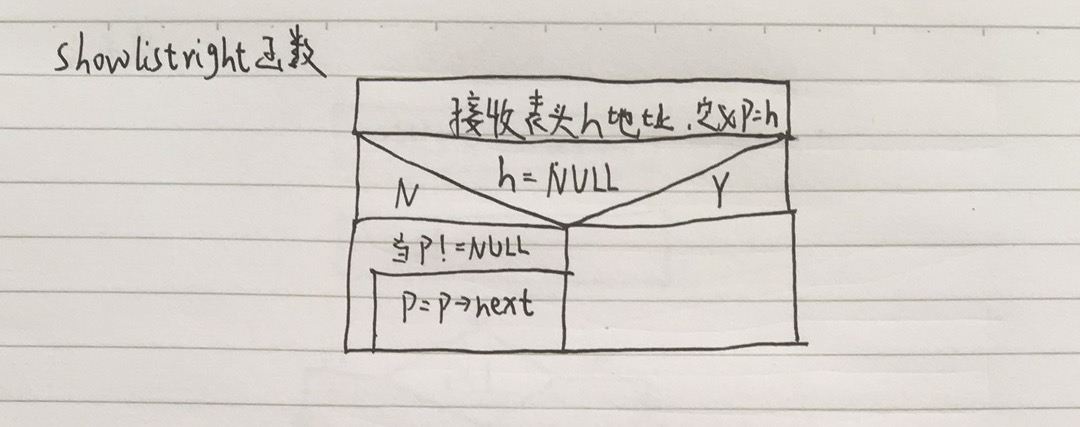 showlistright函数
接收表头h地址.定义p=h
h=NULL
N
Y
当p!=NULL
p=p→next